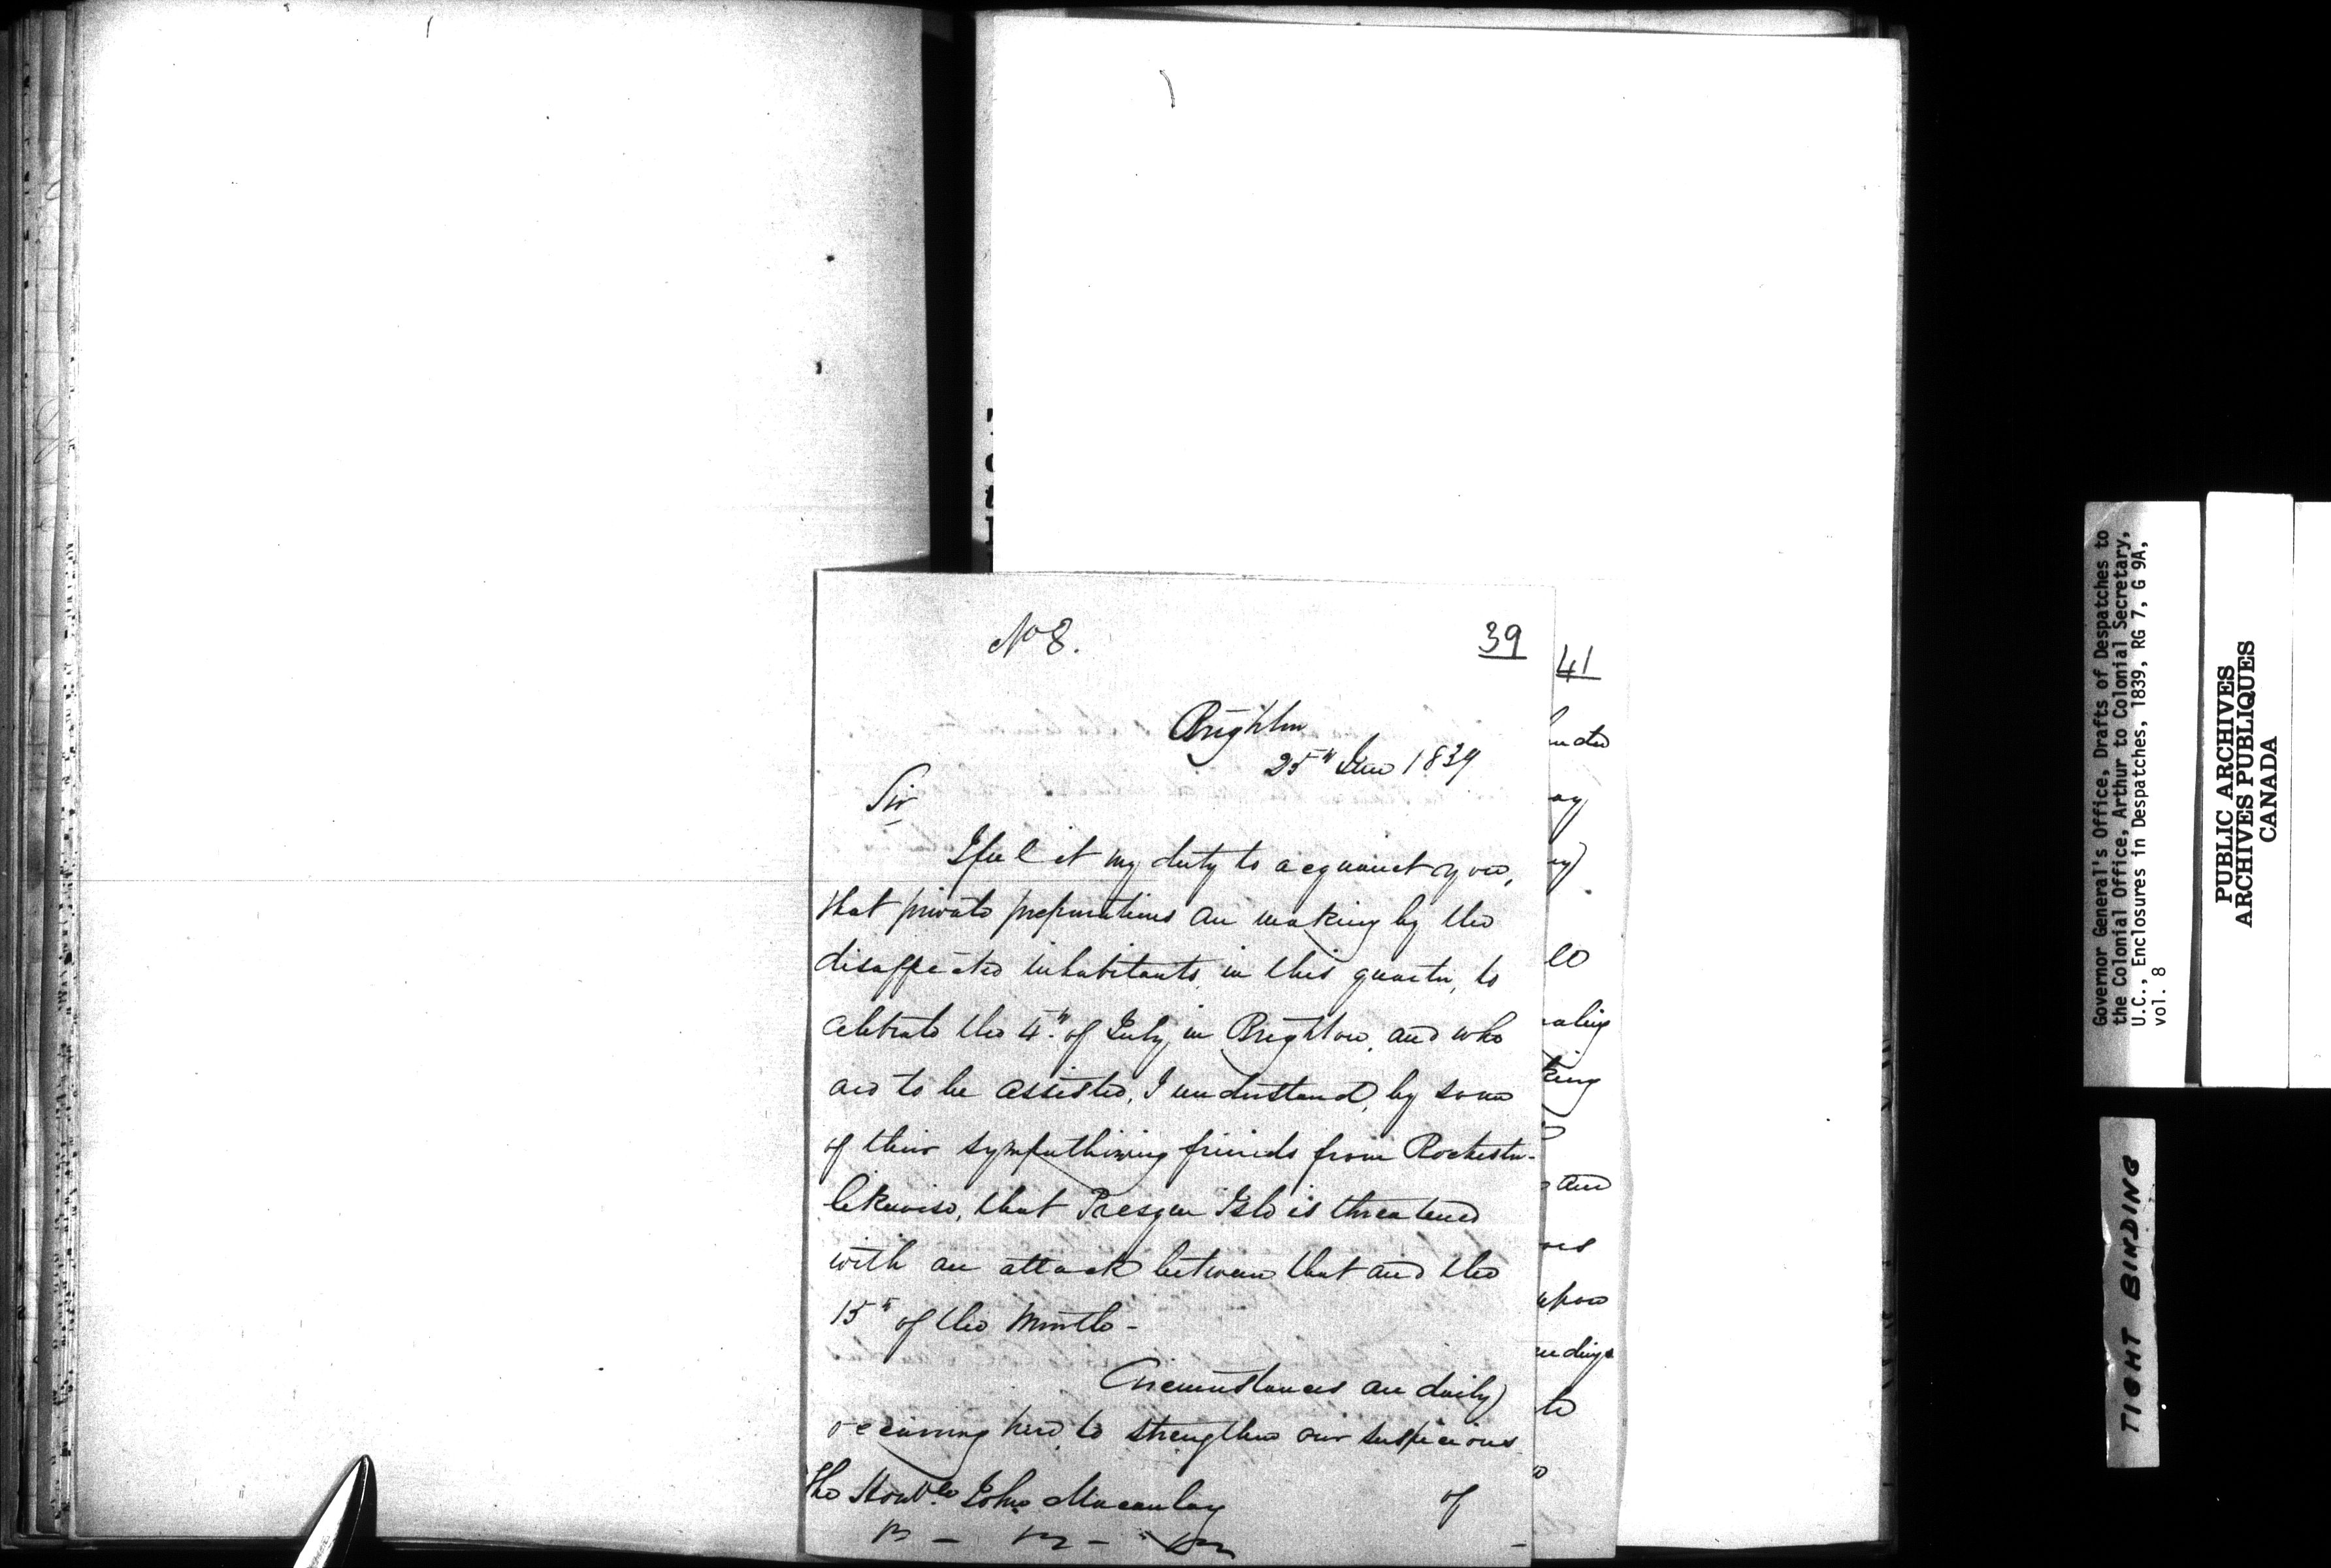 No 8.
39
Brighton
25th June 1839
Sir
I feel it my duty to acquaint you,
that private preparations are making by the
disaffected inhabitants, in this quarter, to
celebrate the 4th. of July in Brighton, and who
are to be assisted, I understand, by some
of their sympathising friends from Rochester-
likewise, that Presque Isle is threatened
with an attack between that and the
15th of the Month -
Circumstances are daily
occurring here to strengthen our suspicions
The Honble John Macaulay
of
41
under
king
and
upon
to
Governor General's Office, Drafts of Despatches to
the Colonial Office, Arthur to Colonial Secretary,
U.C., Enclosures in Despatches, 1839, RG 7, G 9A,
vol. 8
PUBLIC ARCHIVES
ARCHIVES PUBLIQUES
CANADA
TIGHT BINDING